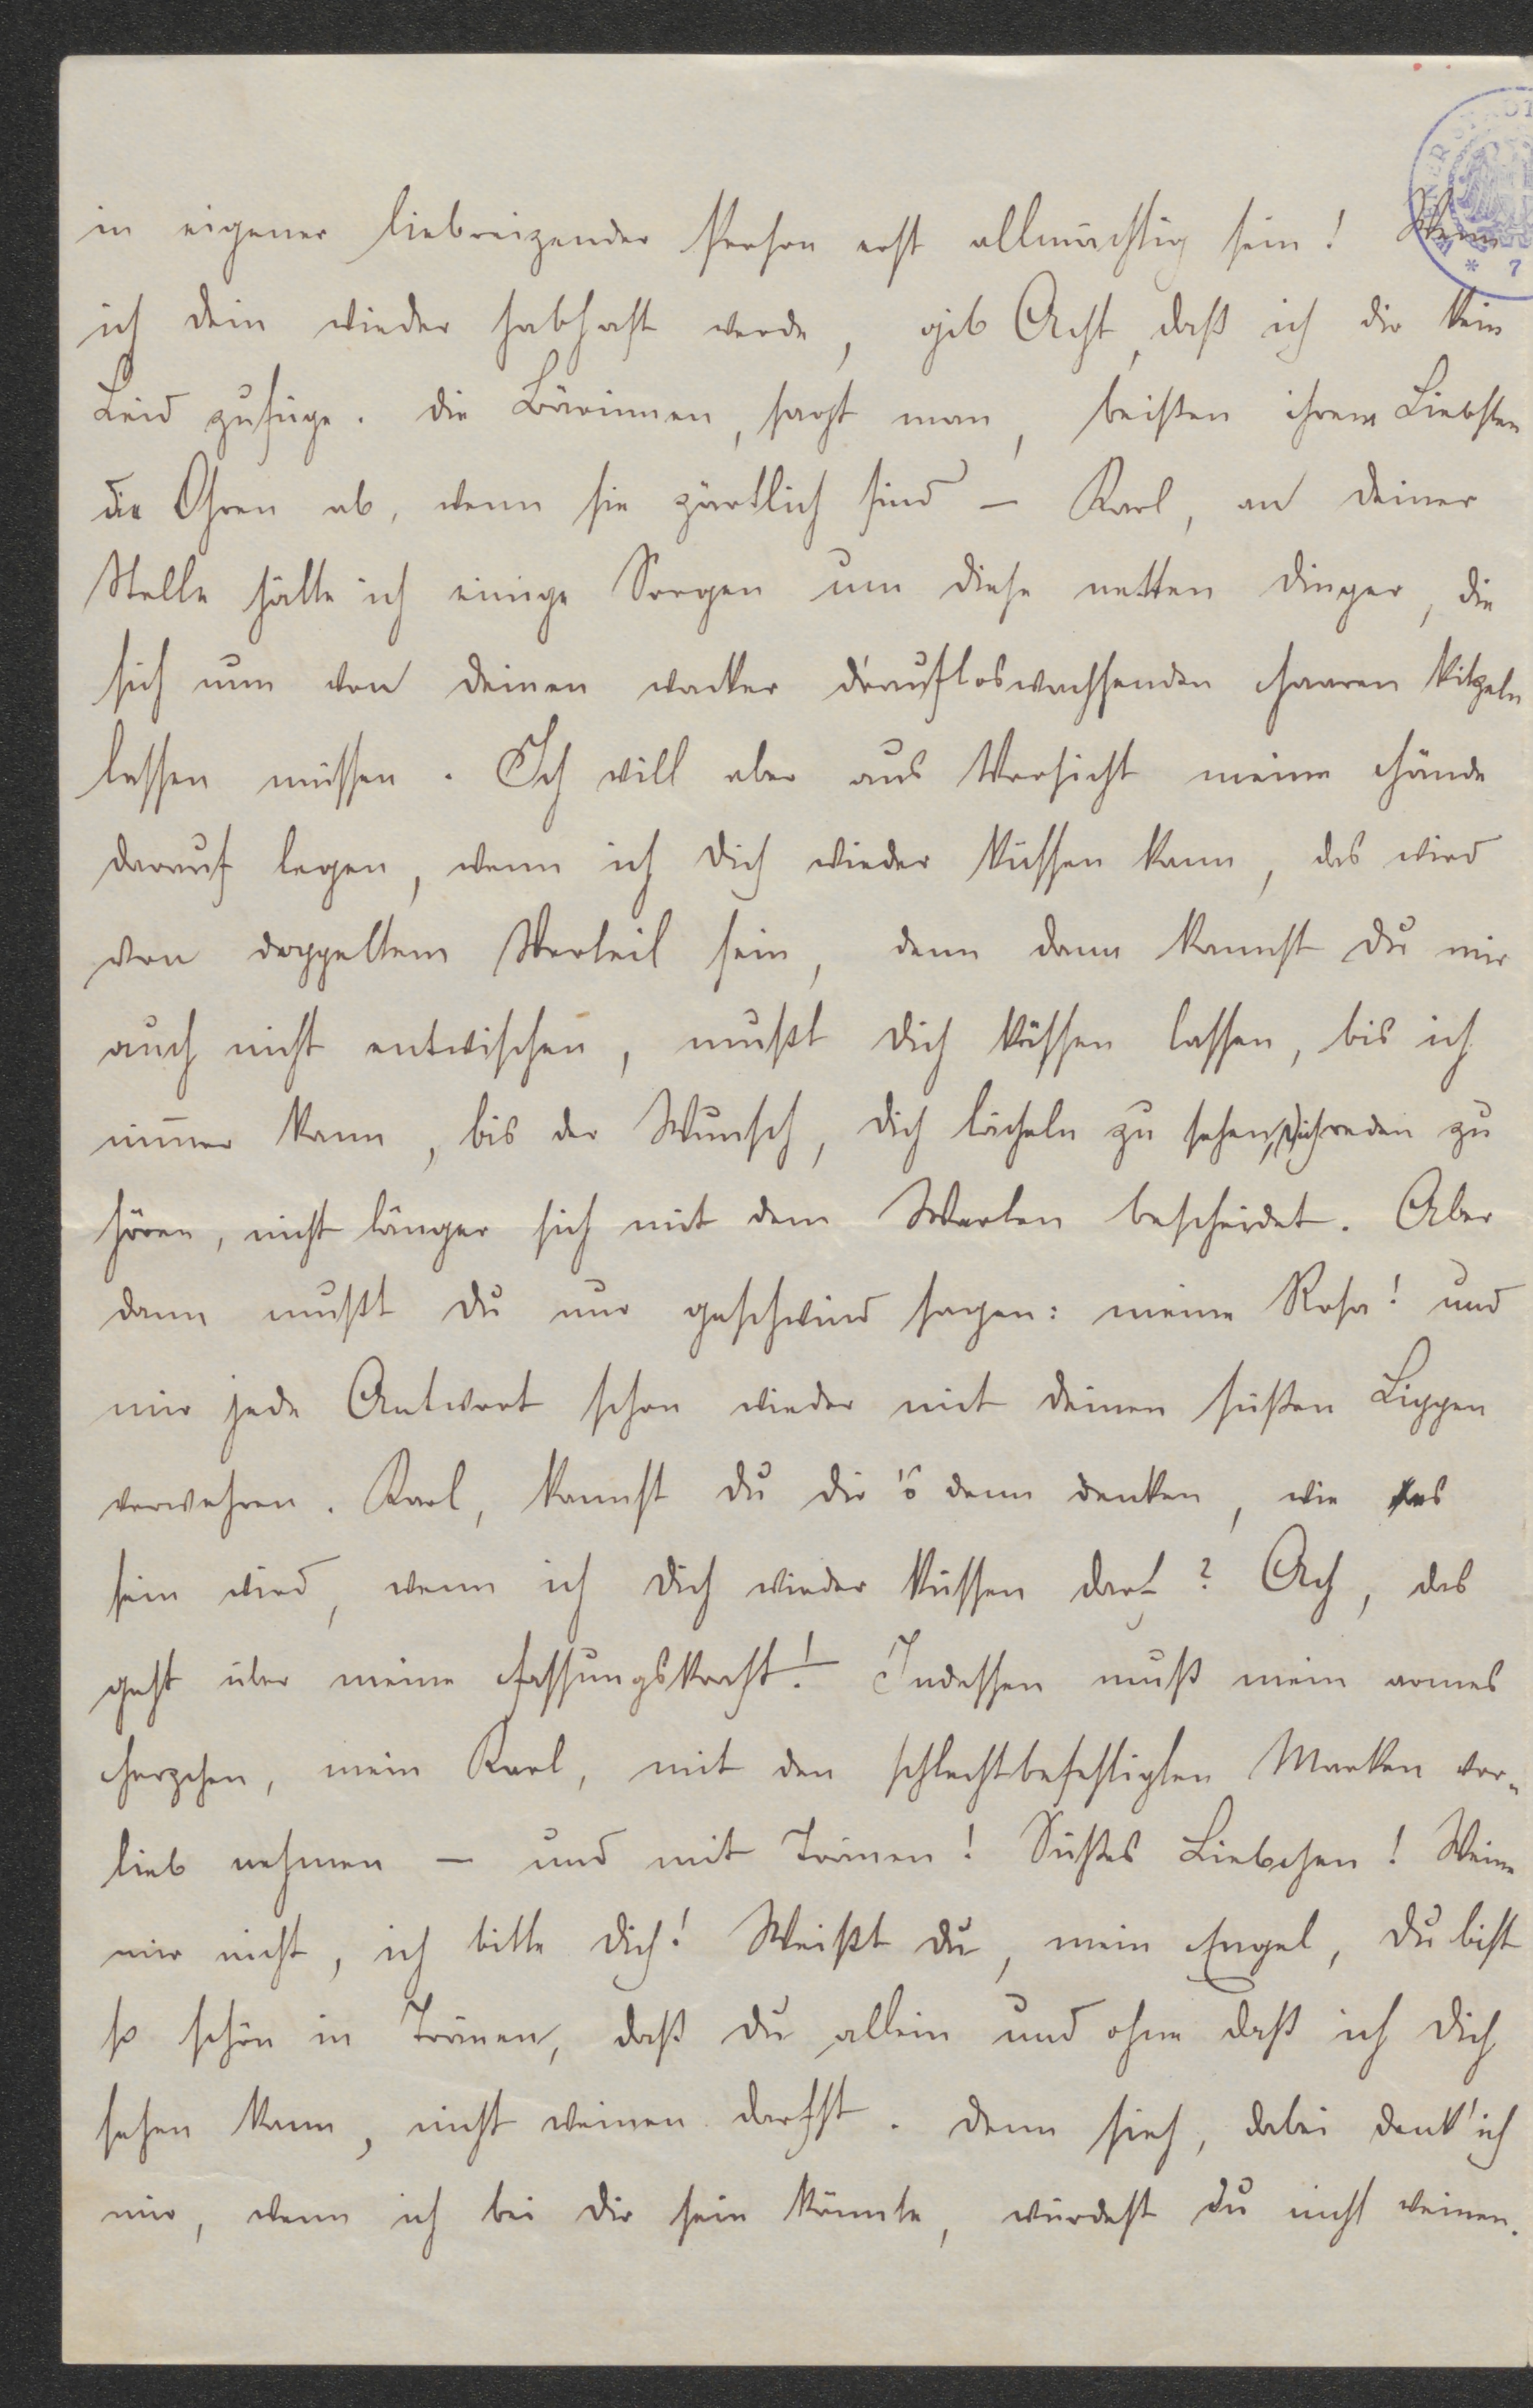 in eigener liebreizender Person erst allmächtig sein! Wenn
ich dein wieder habhaft werde, gib Acht, daß ich dir kein
Leid zufüge. Die Bärinnen, sagt man, beißen ihrem Liebsten
die Ohren ab, wenn sie zärtlich sind – Karl, an deiner
Stelle hätte ich einige Sorgen um diese netten Dinger, die
sich nun von deinen wacker drauf loswachsenden Haaren kitzeln
lassen müssen. Ich will aber aus Vorsicht meine Hände
darauf legen, wenn ich dich wieder küssen kann, das wird
von doppeltem Vorteil sein, denn dann kannst du mir
auch nicht entwischen, mußt dich küssen lassen, bis ich
nimmer kann, bis der Wunsch, dich lächeln zu sehen, dich reden zu
hören, nicht länger sich mit dem Warten bescheidet. Aber
dann mußt du nur geschwind sagen: meine Rosa! und
mir jede Antwort schon wieder mit deinen süßen Lippen
verwehren. Karl, kannst du dir's denn denken, wie es
sein wird, wenn ich dich wieder küssen darf? Ach, das
geht über meine Fassungskraft! – Indessen muß mein armes
Herzchen, mein Karl, mit den schlechtbefestigten Marken vor-
lieb nehmen – und mit Tränen! Süßes Liebchen! Weine
mir nicht, ich bitte dich! Weißt du, mein Engel, du bist
so schön in Tränen, daß du allein und ohne daß ich dich
sehen kann, nicht weinen darfst. Denn sieh, dabei denk' ich
mir, wenn ich bei dir sein könnte, würdest du nicht weinen.
* 7